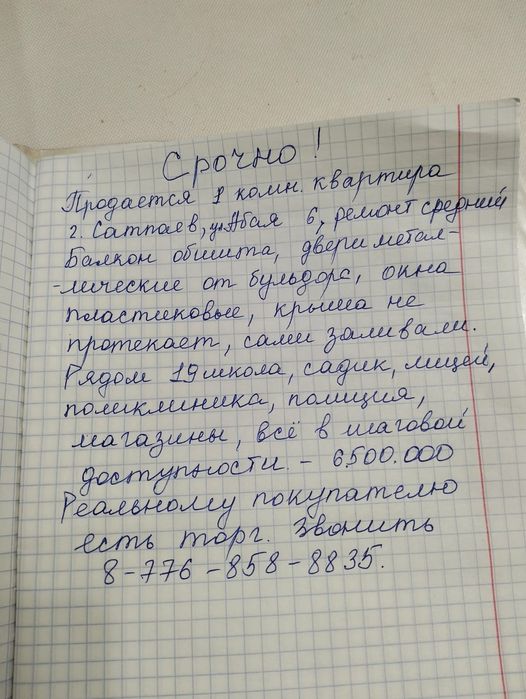 Срочно!
Продается 1 комн. квартира
г. Сатпаев, ул Абая 6, ремонт средний
Балкон обшита, двери метал-
-лические от бульдорс, окна
пластиковые, крыша не
протекает, сами заливали.
Рядом 19 школа, садик, лицей,
поликлиника, полиция,
магазины, всё в шаговой
доступности - 6500.000
Реальному покупателю
есть торг. Звонить
8-776-858-8835.